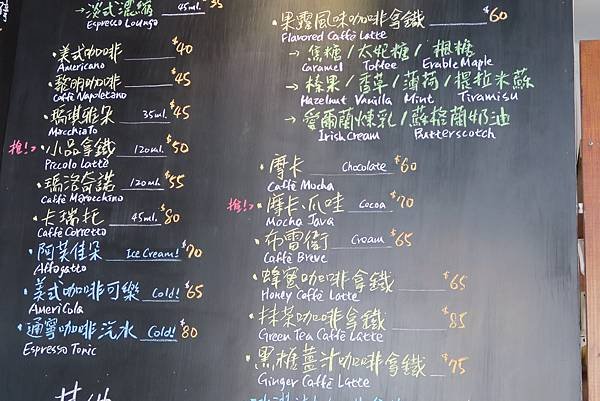 淡式濃縮 35
Espresso Lungo
・美式咖啡 $40
Americano
・黎明咖啡 $45
Caffè Napoletano
・瑪琪雅朵 35ml. $45
Macchiato
推!>・小品拿鐵 120ml. $50
Piccolo Latte
・瑪洛奇諾 120ml. $55
Caffè Marocchino
・卡瑞托 45ml. $80
Caffè Corretto
・阿芙佳朵 Ice Cream! $70
Affogatto
・美式咖啡可樂 Cold! $65
AmeriCola
・通寧咖啡汽水 Cold! $80
Espresso Tonic
・果露風味咖啡拿鐵 $60
Flavored Caffè Latte
→ 焦糖/太妃糖/楓糖
Caramel Toffee Erable Maple
→ 榛果/香草/薄荷/提拉米蘇
Hazelnut Vanilla Mint Tiramisu
→ 愛爾蘭煉乳/蘇格蘭奶油
Irish Cream Butterscotch
・摩卡 Chocolate $60
Caffè Mocha
推!>・摩卡爪哇 Cocoa $70
Mocha Java
・布雷衛 Cream $65
Caffè Breve
・蜂蜜咖啡拿鐵 $65
Honey Caffè Latte
・抹茶咖啡拿鐵 $85
Green Tea Caffè Latte
・黑糖薑汁咖啡拿鐵 $75
Ginger Caffè Latte